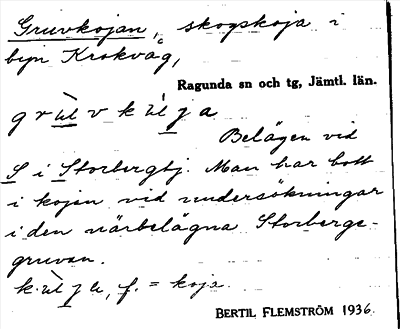 Gruvkojan, skogskoja i
byn Krokvåg,
Ragunda sn och tg, Jämtl. län.
Belägen vid
S i Storbergtj. Man har bott
i kojen vid undersökningar
i den närbelägna Storbergs-
gruvan.
f. = koja.
BERTIL FLEMSTRÖM 1936.